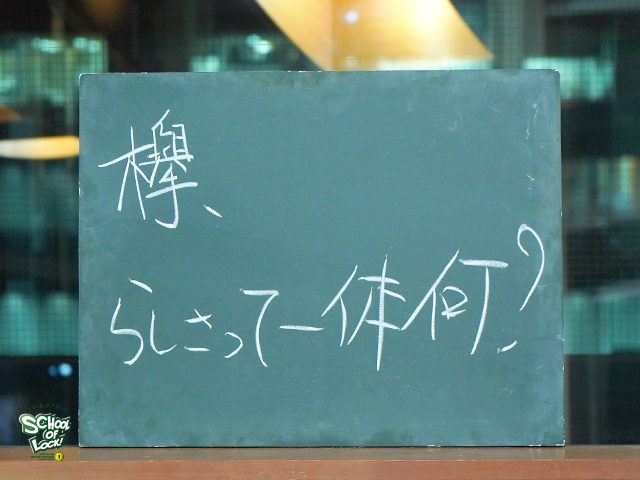 欅、
らしさって一体何？
SCHOOL
OF
LOCK!